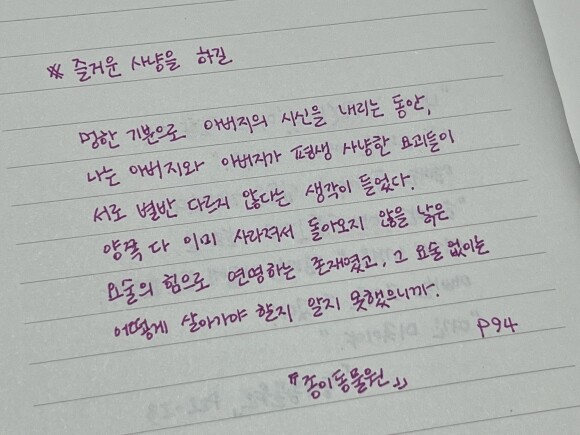 ※ 즐거운 사냥을 하길
멍한 기분으로 아버지의 시신을 내리는 동안,
나는 아버지와 아버지가 평생 사냥한 요괴들이
서로 별반 다르지 않다는 생각이 들었다.
양쪽 다 이미 사라져서 돌아오지 않을 낡은
요술의 힘으로 연명하는 존재였고, 그 요술 없이는
어떻게 살아가야 할지 알지 못했으니까.
P94
『종이동물원』